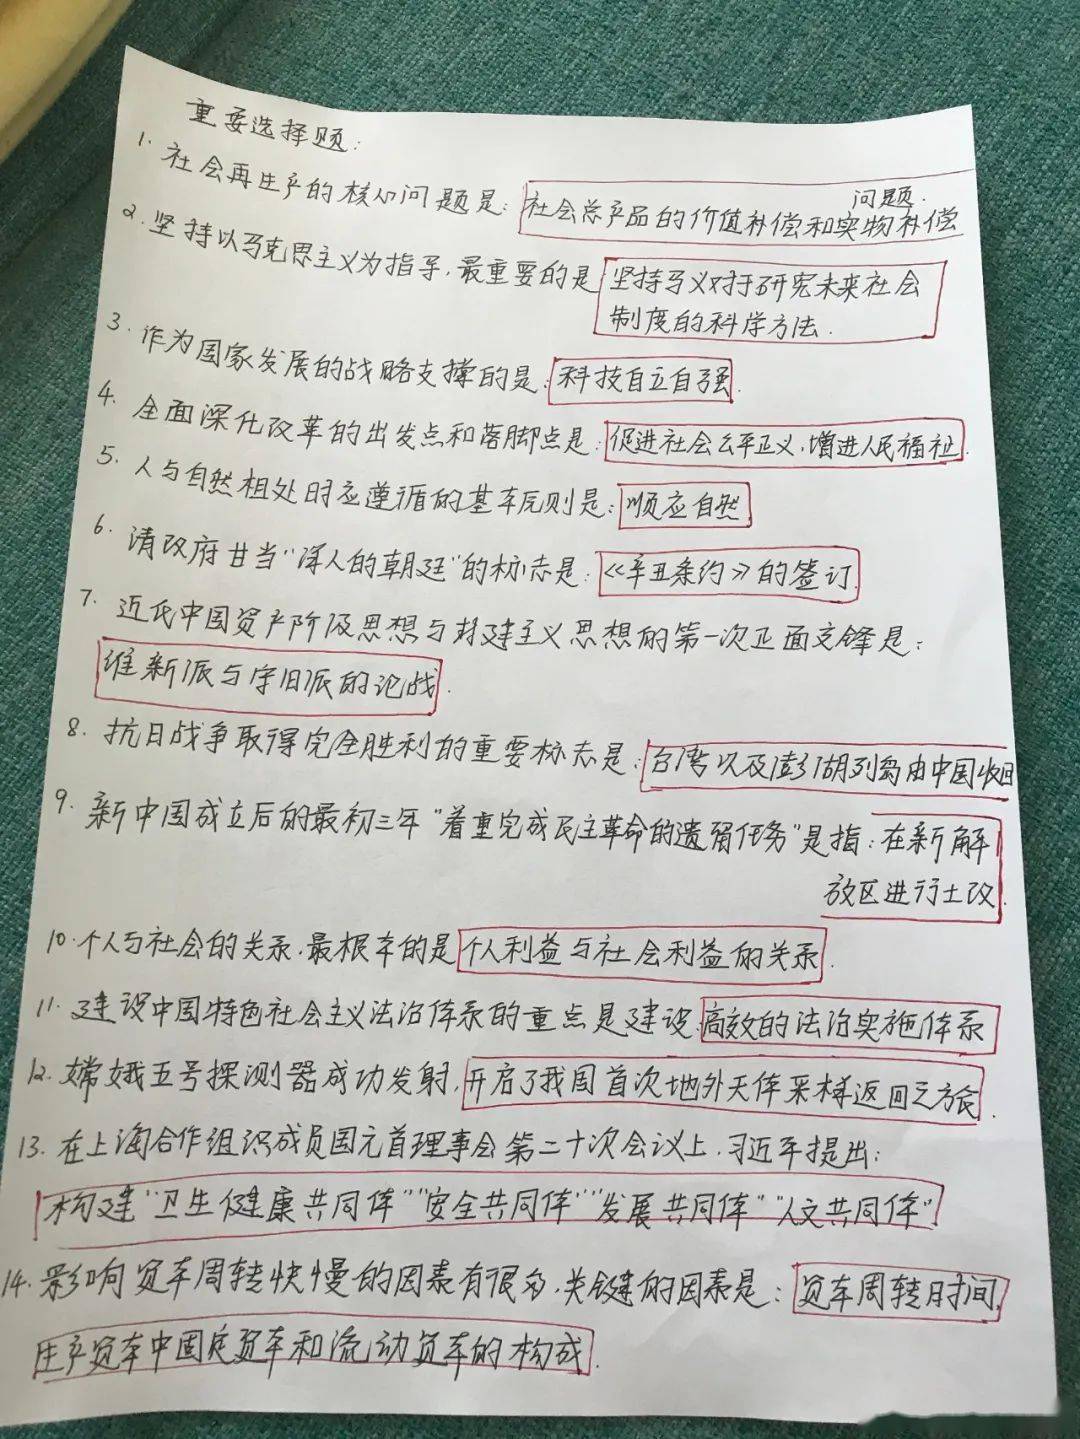 重要选择题:
1. 社会再生产的核心问题是:社会总产品的价值补偿和实物补偿
问题.
2. 坚持以马克思主义为指导,最重要的是坚持马义对于研究未来社会
制度的科学方法.
3. 作为国家发展的战略支撑的是:科技自立自强.
4. 全面深化改革的出发点和落脚点是:促进社会公平正义,增进人民福祉.
5. 人与自然相处时应遵循的基本原则是:顺应自然
6. 清政府甘当“洋人的朝廷”的标志是:《辛丑条约》的签订.
7. 近代中国资产阶级思想与封建主义思想的第一次正面交锋是:
维新派与守旧派的论战.
8. 抗日战争取得完全胜利的重要标志是:台湾以及澎湖列岛由中国收回
9. 新中国成立后的最初三年“着重完成民主革命的遗留任务”是指:在新解
放区进行土改.
10. 个人与社会的关系,最根本的是个人利益与社会利益的关系.
11. 建设中国特色社会主义法治体系的重点是建设:高效的法治实施体系
12. 嫦娥五号探测器成功发射,开启了我国首次地外天体采样返回之旅.
13. 在上海合作组织成员国元首理事会第二十次会议上,习近平提出:
构建“卫生健康共同体”“安全共同体”“发展共同体”“人文共同体”
14. 影响资本周转快慢的因素有很多,关键的因素是:资本周转时间,
生产资本中固定资本和流动资本的构成.